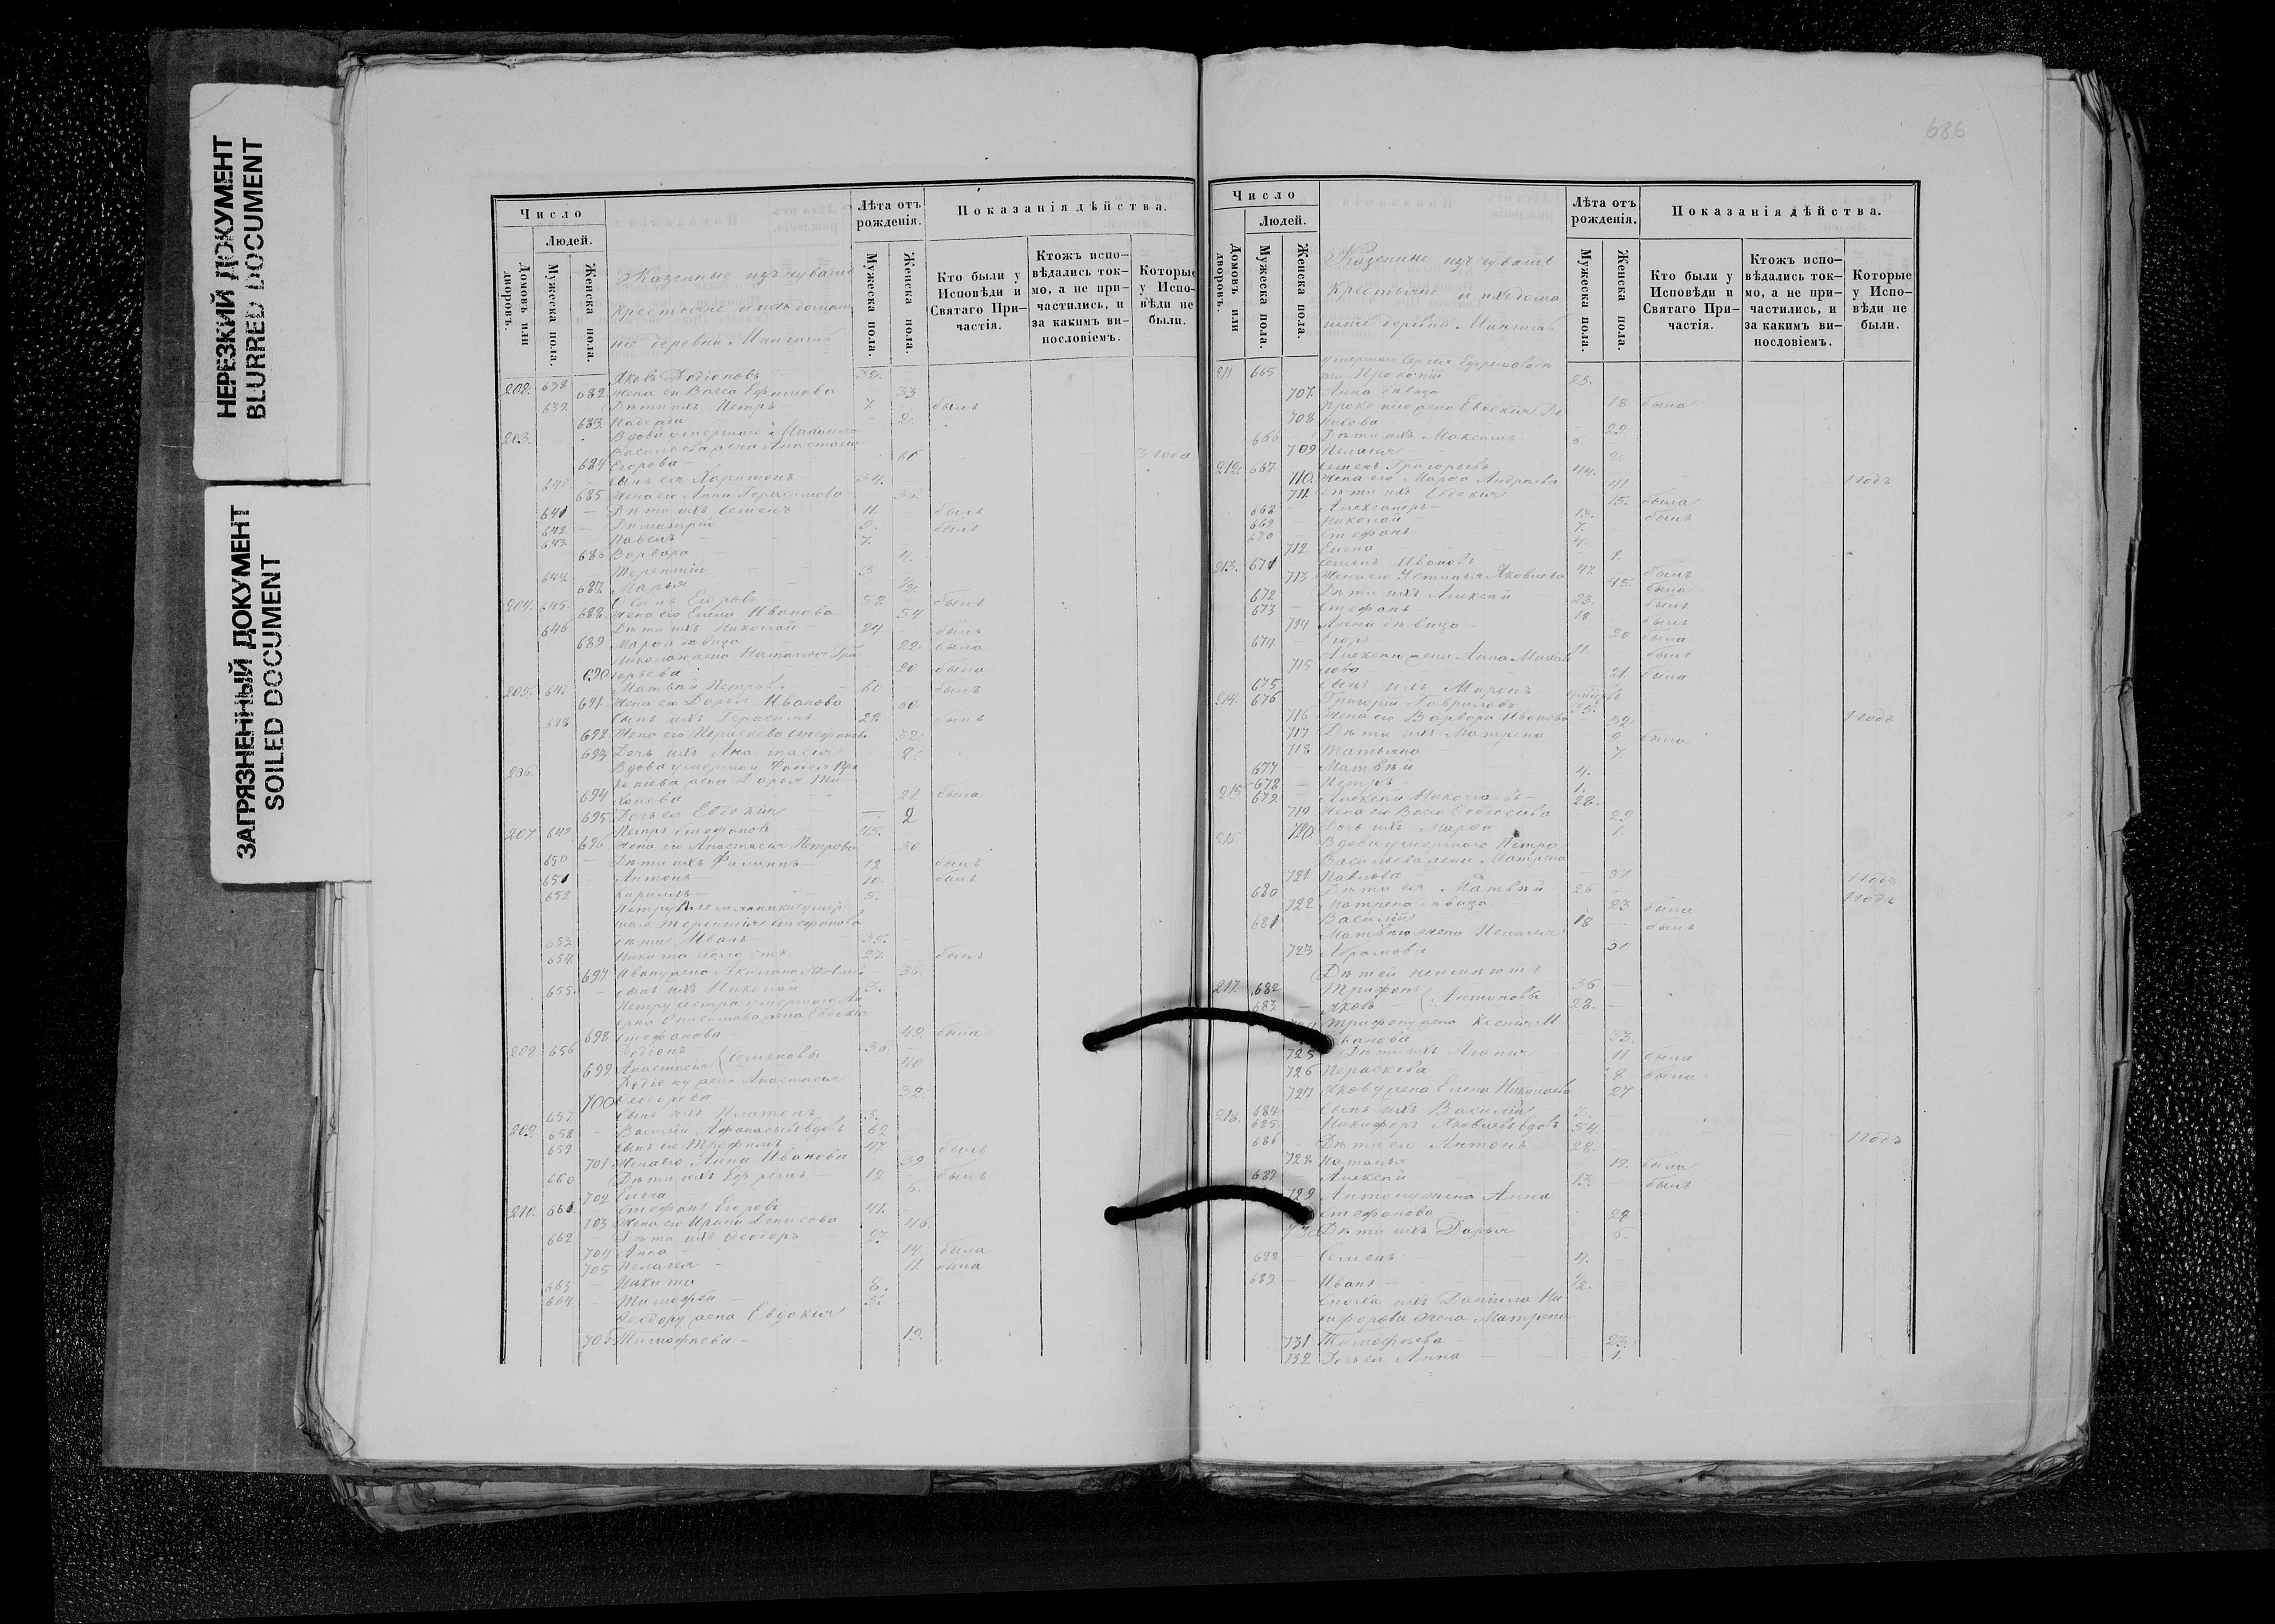 НЕРЕЗКИЙ ДОКУМЕНТ
BLURRED DOCUMENT
ЗАГРЯЗНЕННЫЙ ДОКУМЕНТ
SOILED DOCUMENT
686
Число
Людей.
Домовъ или дворовъ.
Мужеска пола.
Женска пола.
Казенные изъ чувашъ
крестьяне и ихъ домаш
ніе деревни
Лѣта отъ рожденія.
Мужеска пола.
Женска пола.
Показанія дѣйства.
Кто были у Исповѣди и Святаго При-частія.
Ктожъ испо-вѣдались ток-мо, а не при-частились, и за какимъ ви-нословіемъ.
Которые у Испо-вѣди не были.
202. 638 Яковъ Родіоновъ 32.
682 Жена ея Васса Ефимова 33
639. Дѣти ихъ Петръ 7. былъ
683. 2.
203. Вдова умершаго Николая
Васильева жена Анастасія
684 Егорова 60 3 года
640 Сынъ ея Харитонъ 34.
685 Жена его Анна Герасимова 36.
641 Дѣти ихъ Семенъ 11. былъ
642 Димитрій 9. былъ
643 Павелъ 7.
686 Варвара 4.
644 Терентій 3
687. Марья 1/2.
204. 645. Осипъ Егоровъ 52. былъ
688 Жена его Елена Иванова 54
646 Дѣти ихъ Николай 24. былъ
689 Марфа дѣвица 22. была
Николая жена Наталья Гри
690 горьева 20. была
205. 647. Матвѣй Петровъ 60 былъ
691 Жена его Дарья Иванова 60.
648 Сынъ ихъ Герасимъ 22. былъ
692 Жена его Параскева Стефанова 32.
693 Дочь ихъ Анастасія 2.
206. Вдова
694 21. была
695. Дочь ея Евдокія 2
207 649 Петръ Стефановъ 45.
696 Жена его Анастасія Петрова 50.
650 Дѣти ихъ Филиппъ 12 былъ
651 Антонъ 10. былъ
652 Кириллъ 5.
Петру племянники умер
шаго Терентія Стефанова
653. дѣти Иванъ 35.
654. Никита холостъ 27. былъ
697 Ивану жена Акилина Яковлева 36
655. сынъ ихъ Николай 3.
Петру сестра умершаго
жена Евдокія
698 Стефанова 42. была
208 656 Родіонъ Семеновы 36.
699. Анастасія 40
Родіону жена Анастасія
700 Ѳеодорова 32.
657. Сынъ ихъ Платонъ 3.
209. 658 Василій Афанасьевъ вдовъ 62
659. Сынъ его Трофимъ 47. былъ
701 Жена его Анна Иванова 39
660 Дѣти ихъ Ефремъ 12 былъ
702 Елена 6.
210. 661. Стефанъ Егоровъ 41.
703 Жена его Ирина Денисова 46.
662 Дѣти ихъ Ѳеодоръ 27.
704 Анна 14. была
705 Пелагея 11. была
663 Никита 8.
664 Тимофей 3.
Ѳеодору жена Евдокія
706 Тимофеева 19.
Число
Людей.
Домовъ или дворовъ.
Мужеска пола.
Женска пола.
Казенные изъ чувашъ
крестьяне и ихъ дома
шніе деревни
Лѣта отъ рожденія.
Мужеска пола.
Женска пола.
Показанія дѣйства.
Кто были у Исповѣди и Святаго При-частія.
Ктожъ испо-вѣдались ток-мо, а не при-частились, и за какимъ ви-нословіемъ.
Которые у Испо-вѣди не были.
умершаго Сергія Ефремова дѣ
211 665 ти Прокопій 25.
707. Анна дѣвица 18 была
Прокопію жена Евдокія
708 29.
666 Дѣти ихъ Максимъ 6.
709 Пелагія 2.
212. 667. Семенъ Григорьевъ 44.
710. Жена его Марфа Андреева 41. 1 годъ
711. Дѣти ихъ Евдокія 15. была
668 Александръ 13. былъ
669 Николай 7.
670 Стефанъ 4.
712 Елена 1.
213. 671 Семенъ Ивановъ 47. былъ
713 Жена его Устинья Яковлева 45. была
672 Дѣти ихъ Алексѣй 23. былъ
673 Стефанъ 18 былъ
714 Анна дѣвица 20 была
674. Егоръ 11. былъ
Алексѣю жена Анна Михай
715 лова 21. была
675 Сынъ ихъ Миронъ
214. 676 Григорій Гавриловъ 35.
716 Жена его Варвара Иванова 32. 1 годъ
717 Дѣти ихъ Матрена 9 была
718 Татьяна 7.
677 Матвѣй 4.
678 Петръ 1.
215 679. Алексѣй Николаевъ 28.
719 Жена его Васса Ѳеодосіева 29
720. Дочь ихъ Марфа 1.
216. Вдова умершаго Петра
Васильева жена Матрена
721. Павлова 57 1 годъ
680 Дѣти ея Матвѣй 26 1 годъ
722 Матрена дѣвица 23 была
681 Василій 18 былъ
Матвѣю жена Пелагея
723 Абрамова 31
Дѣтей неимѣютъ
217. 682 Трифонъ Антоновы 36.
683. Яковъ 28.
Трифону жена Ксенія И
ванова 33.
725 Дѣти ихъ 11 была
726 Параскева 8 была
727 Якову жена Елена Николаева 27
684 Сынъ ихъ Василій
218. 685. Никифоръ Яковлевъ вдовъ 54.
686 Дѣти его Антонъ 28. 1 годъ
728. Наталья 19. была
687 Алексѣй 13. былъ
729 Антону жена Анна
Стефанова 28
730 Дѣти ихъ Дарья 6.
688 Семенъ 4.
689 Иванъ 1/2.
Сноха ихъ Даніила Ни
кифорова жена Матрена
731 Тимофеева 23.
732 Дочь ея Анна 1.